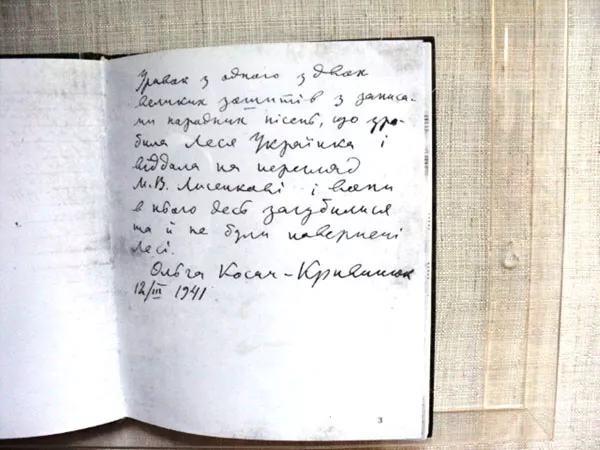 Уривок з одного з двох
великих зошитів з записа-
ми народних пісень, що зро-
била Леся Українка і
віддала на перегляд
М. В. Лисенкові і вони
в нього десь загубилися
та й не були повернені
Лесі.
Ольга Косач-Кривинюк
12/III 1941
3